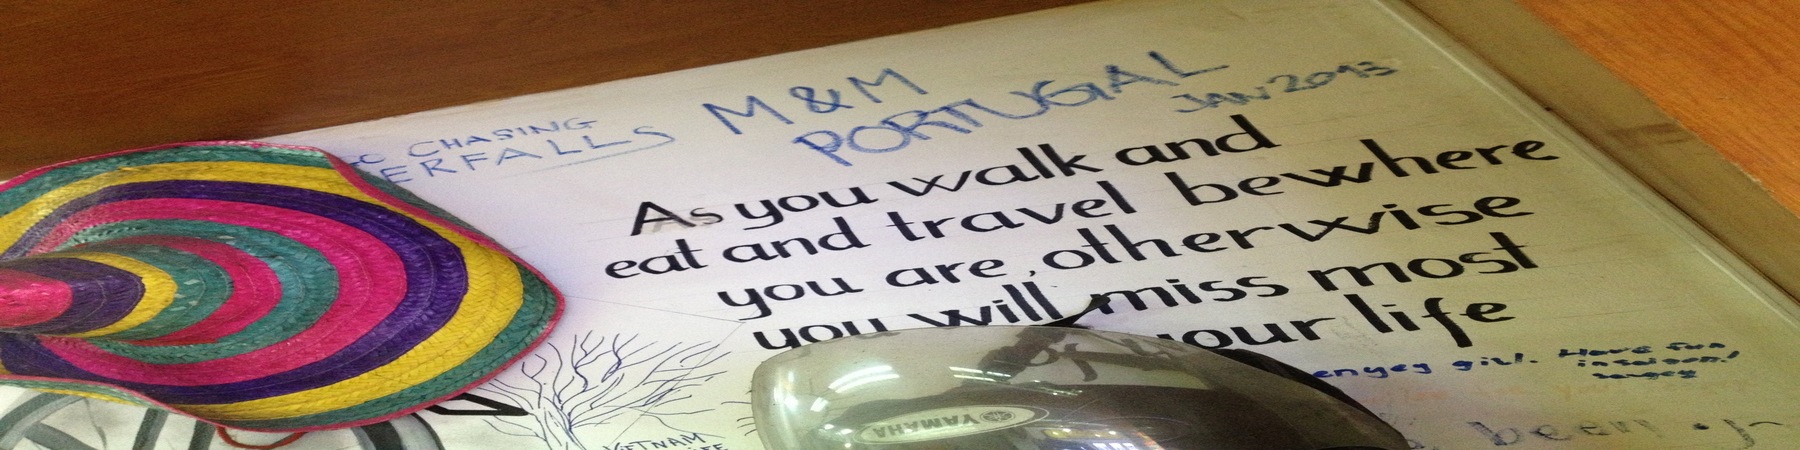 CHASING
ERFALLS
M&M
PORTUGAL
JAN 2013
As you walk and
eat and travel be where
you are, otherwise
you will miss most
your life
girl. Have fun
in saigon!
VIETNAM
YAMAHA
been